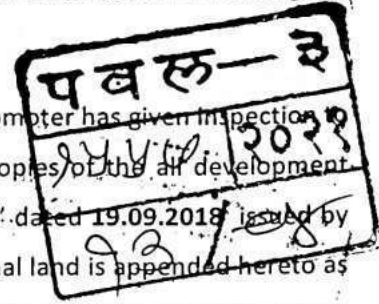 पवल—३
omoter has given inspection
२०२१
opies of the all development
dated 19.09.2018 issued by
१३ /
nal land is appended hereto as